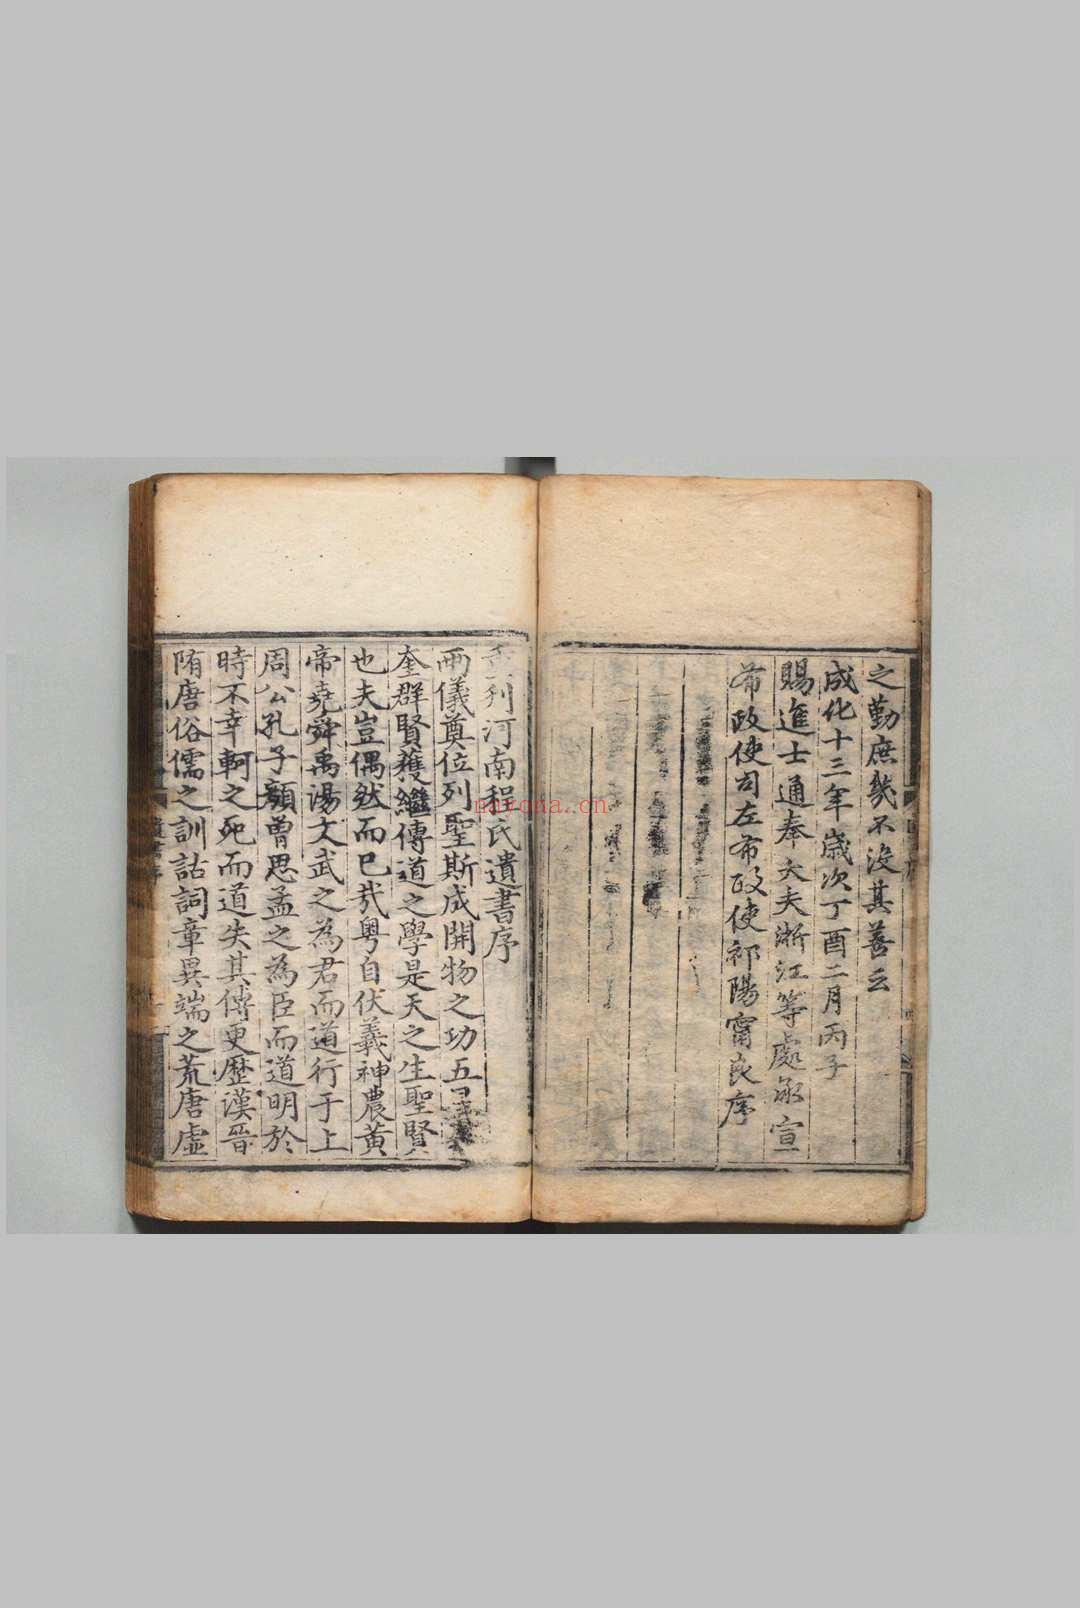 之勤庶幾不沒其善云
成化十三年歲次丁酉二月丙子
賜進士通奉大夫浙江等處承宣
布政使司左布政使祁陽甯良序
重刋河南程氏遺書序
兩儀奠位列聖斯成開物之功五星
奎群賢獲繼傳道之學是天之生聖賢
也夫豈偶然而已哉粤自伏羲神農黃
帝堯舜禹湯文武之為君而道行于上
周公孔子顏曾思孟之為臣而道明於
時不幸軻之死而道失其傳更歷漢晉
隋唐俗儒之訓詁詞章異端之荒唐虛
nayona.cn